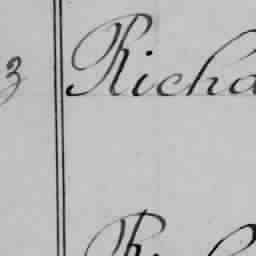 3 Richa